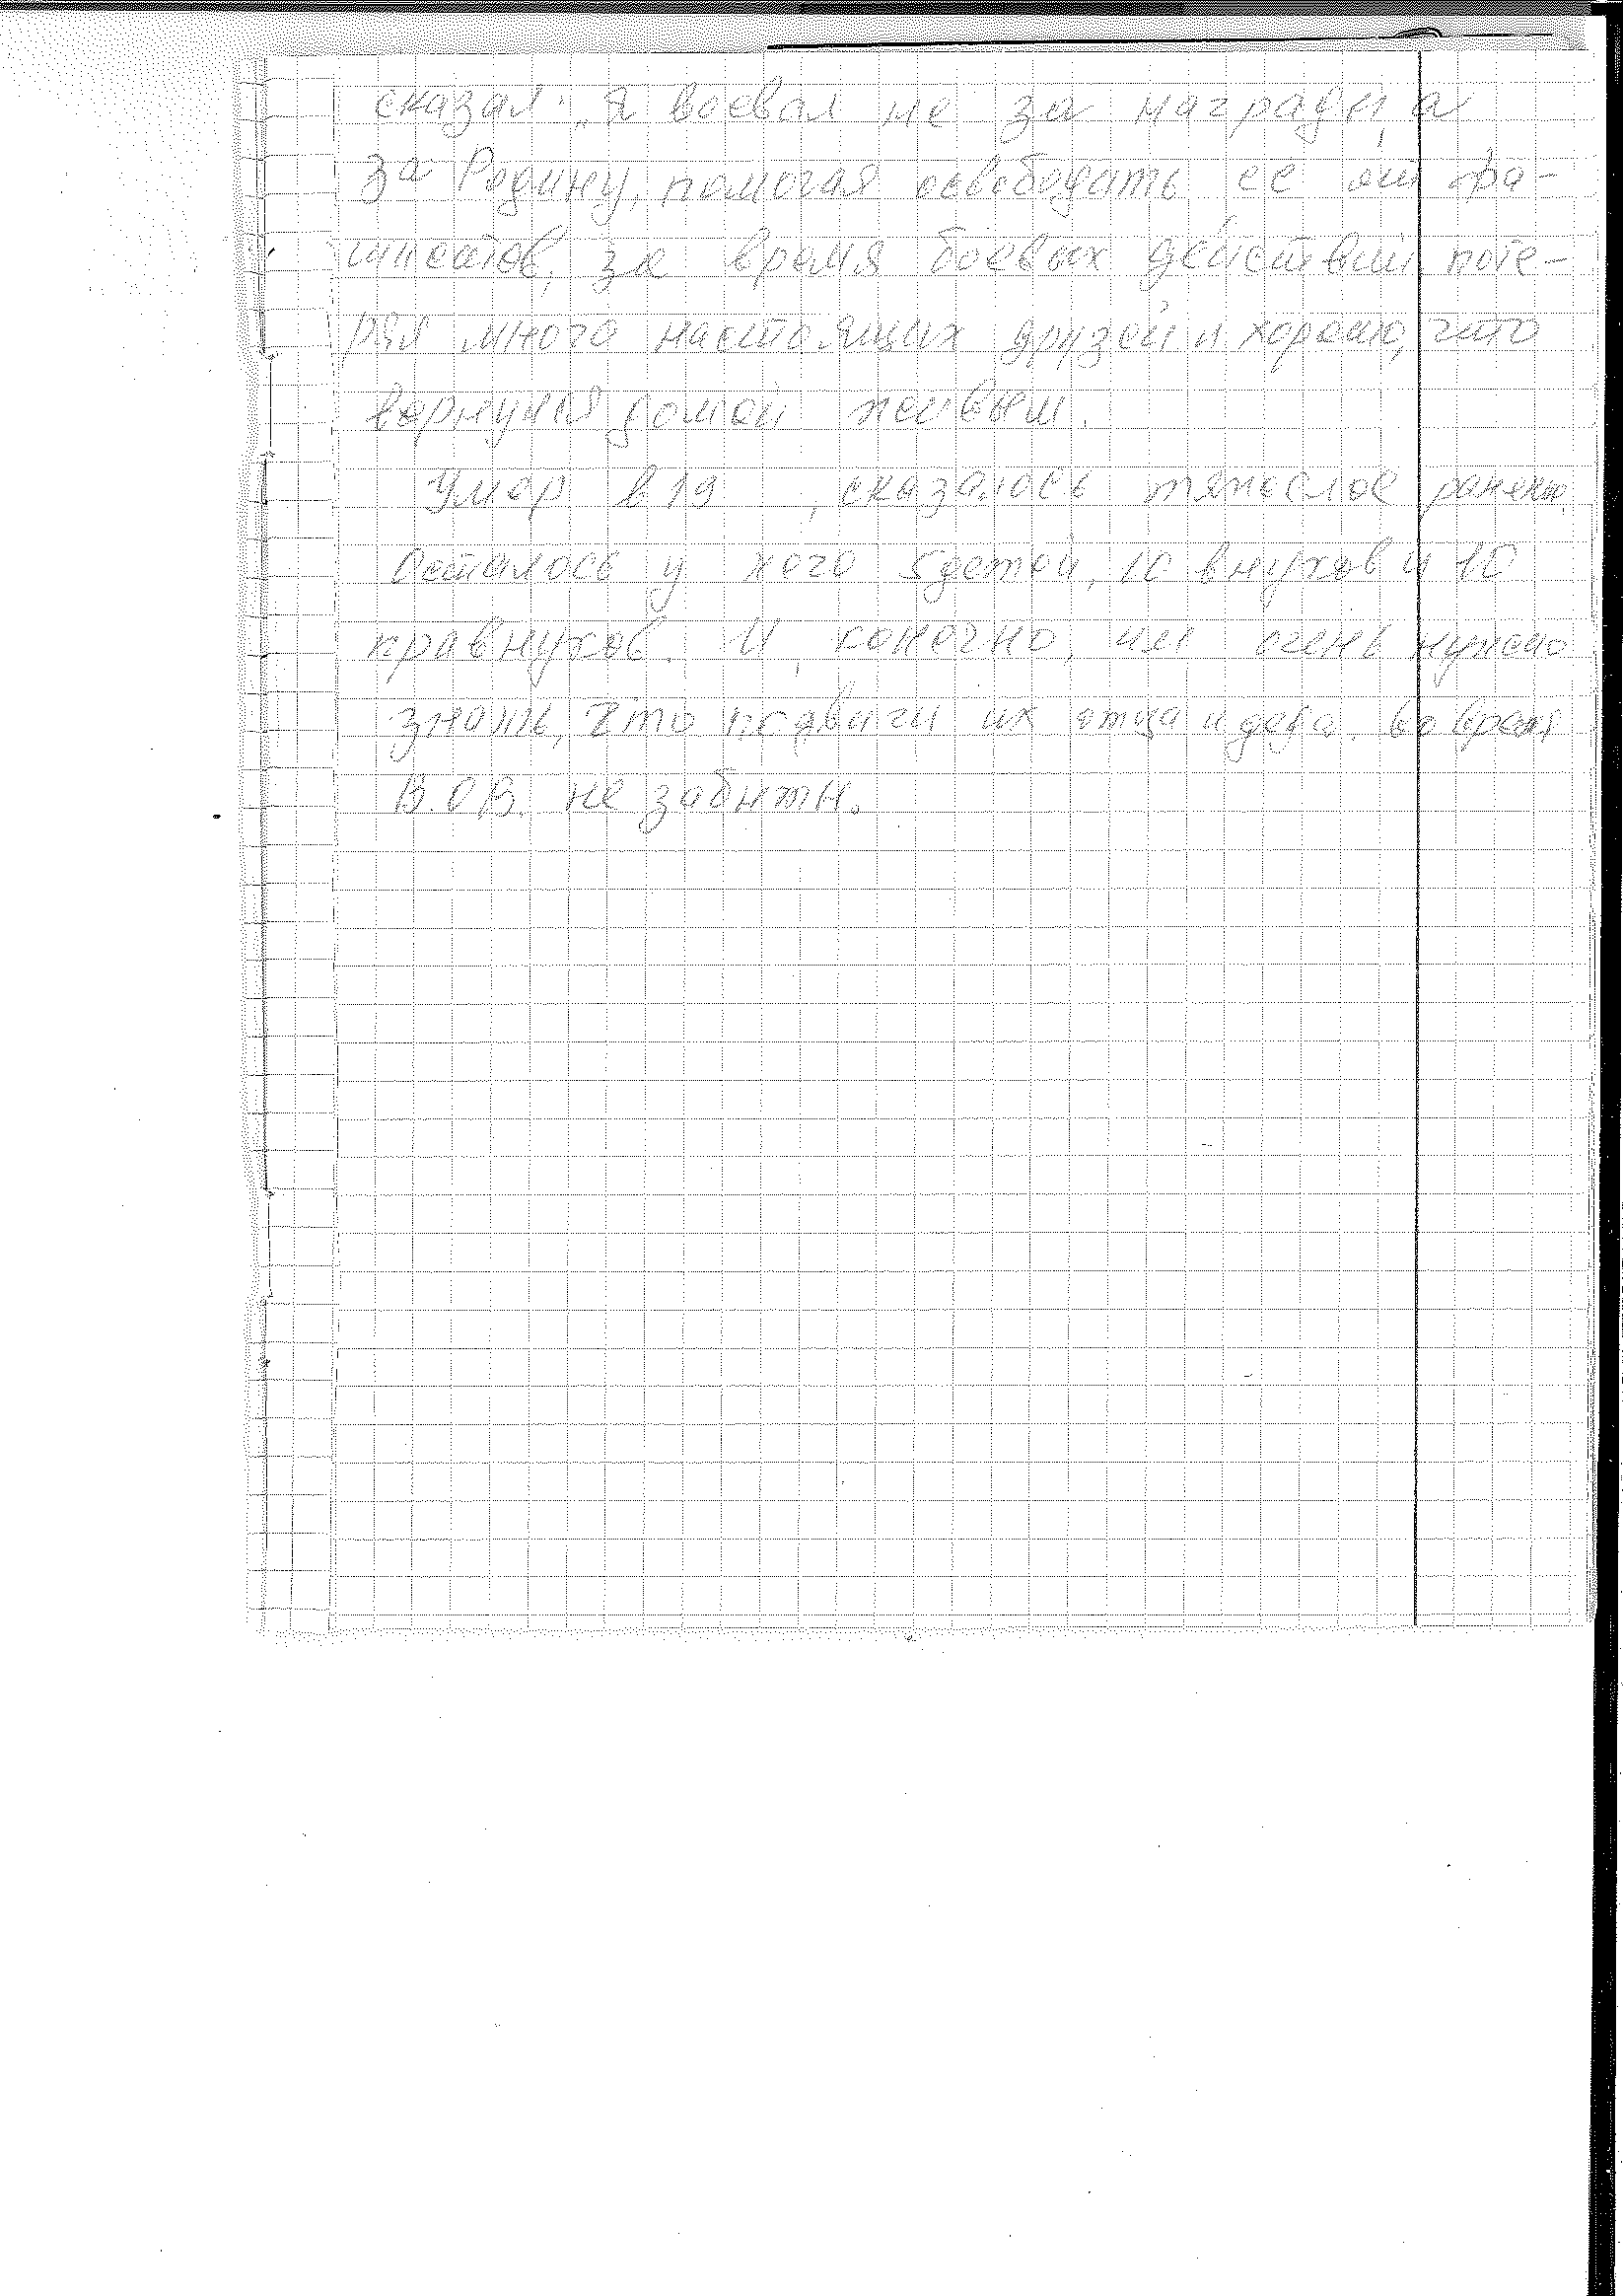 сказал: „Я воевал не за награды, а
за Родину, помогая освобождать ее от фа-
шистов, за время боевых действий поте-
рял много настоящих друзей и хорошо, что
вернулся домой живым.
Умер в 19 , сказалось тяжелое ранение.
Осталось у него 5 детей, 10 внуков и 10
правнуков. И, конечно, им очень нужно
знать, что подвиги их отца и деда, во время
В.О.В. не забыты.